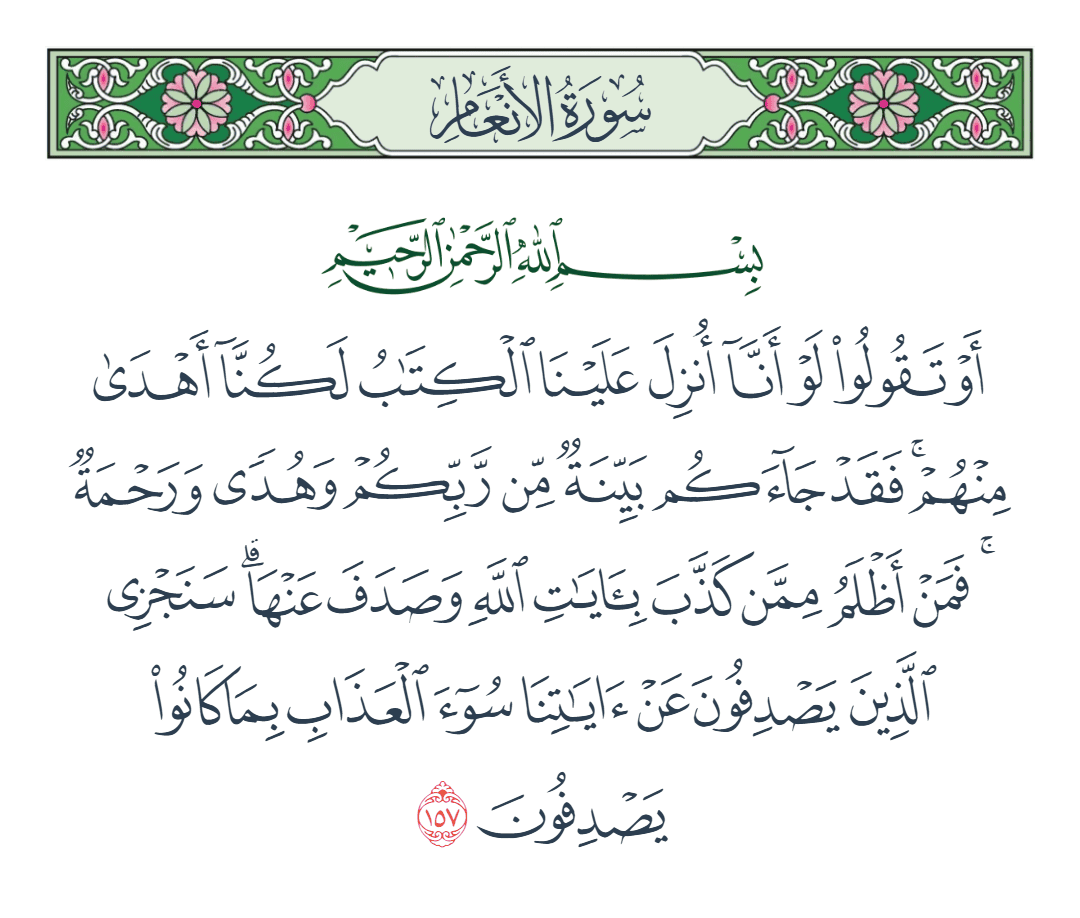 سُورَةُ الأَنْعَامِ
بِسْمِ ٱللَّهِ ٱلرَّحْمَٰنِ ٱلرَّحِيمِ
أَوْ تَقُولُوا۟ لَوْ أَنَّآ أُنزِلَ عَلَيْنَا ٱلْكِتَٰبُ لَكُنَّآ أَهْدَىٰ
مِنْهُمْ ۚ فَقَدْ جَآءَكُم بَيِّنَةٌ مِّن رَّبِّكُمْ وَهُدًى وَرَحْمَةٌ
ۚ فَمَنْ أَظْلَمُ مِمَّن كَذَّبَ بِـَٔايَٰتِ ٱللَّهِ وَصَدَفَ عَنْهَا ۗ سَنَجْزِى
ٱلَّذِينَ يَصْدِفُونَ عَنْ ءَايَٰتِنَا سُوٓءَ ٱلْعَذَابِ بِمَا كَانُوا۟
يَصْدِفُونَ ١٥٧